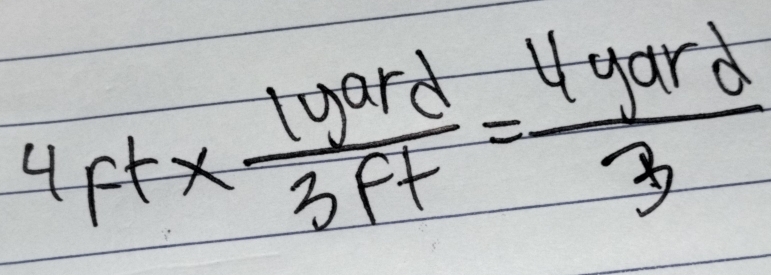 4 ft × 1 yard / 3 ft = 4 yard / 3